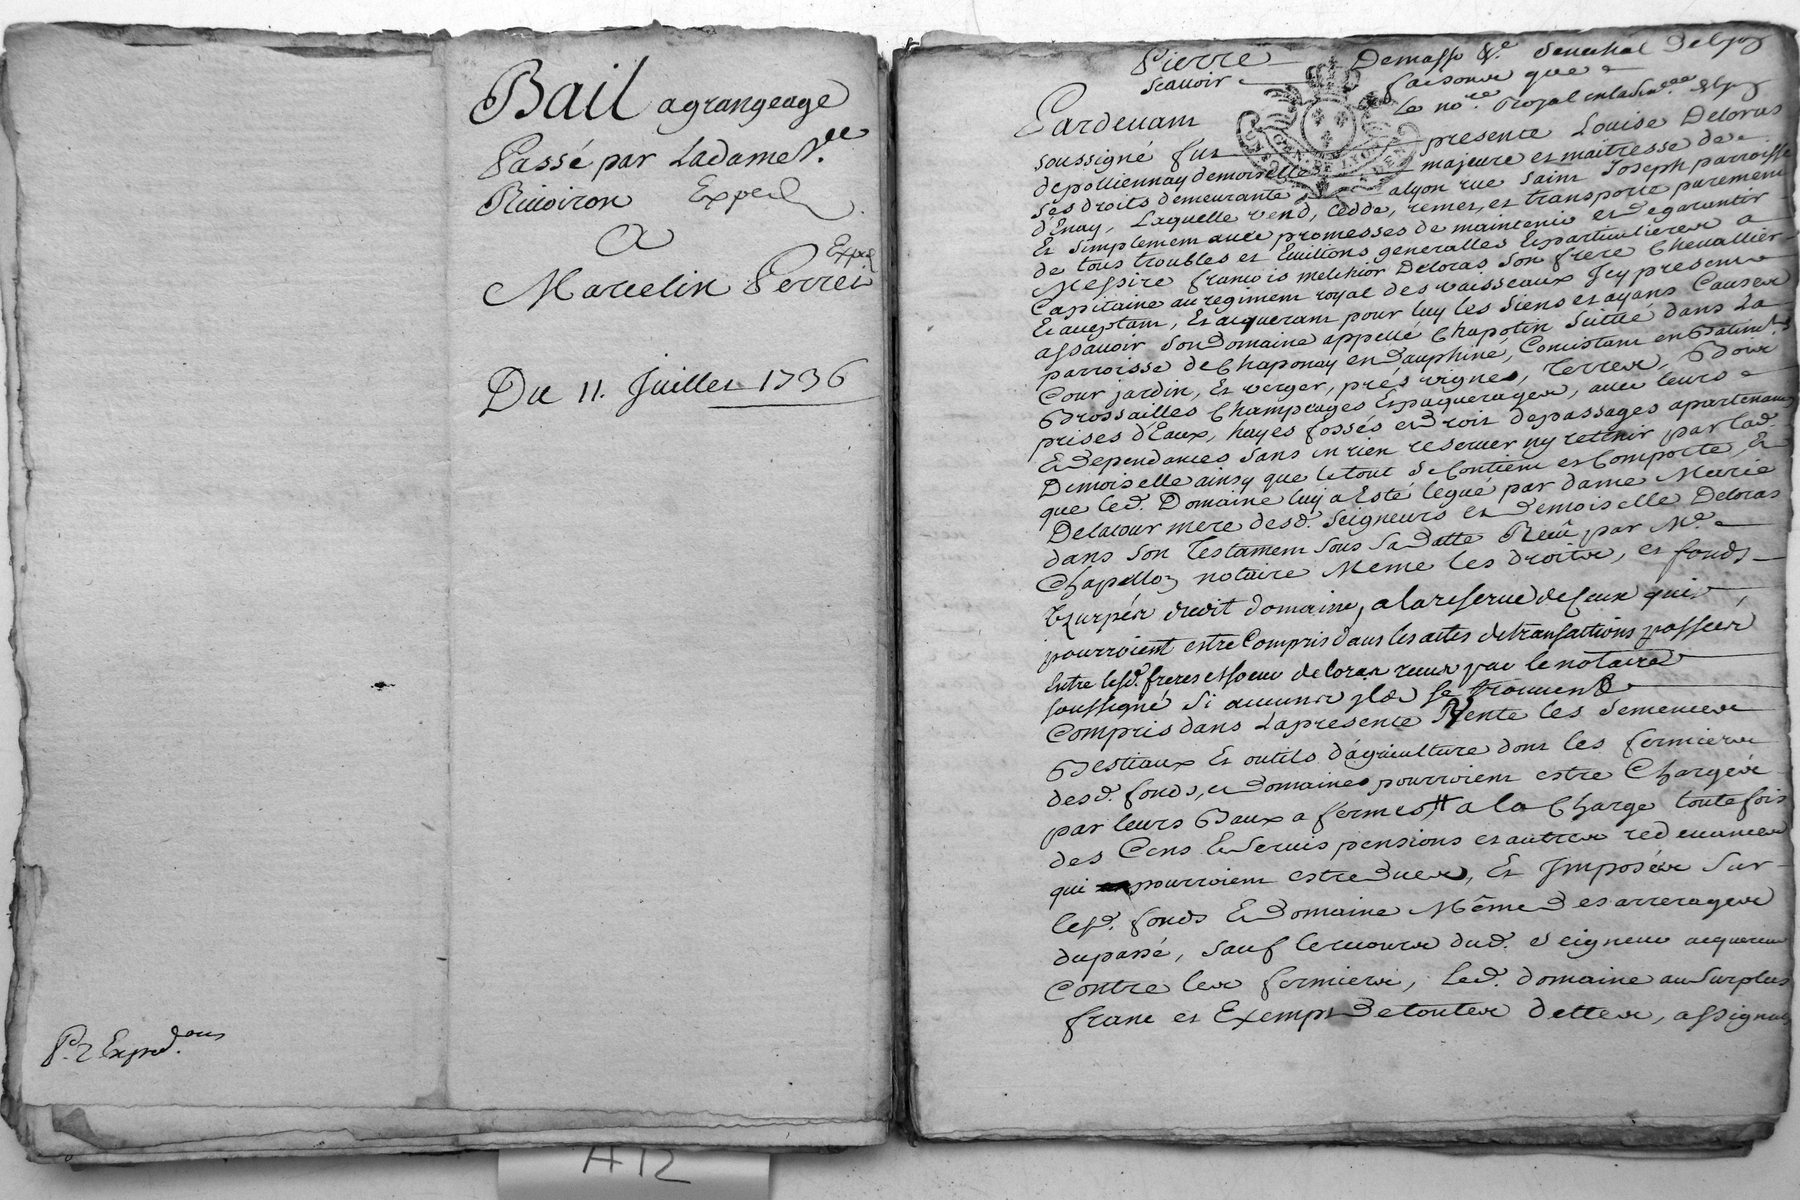 Bail agrangeage
Passé par Ladame V.de
Riuoiron Exped
A
Exped
Marcelin Perrei
Du 11. Juillet 1736
P.r 2 Exped.ons
A12
Pierre Demasso &.c Senechal Delyon
Scauoir faisons que
Pardeuant le no.re Royal
soussigné fut presente Louise Deloras
depolliennay demoiselle majeure et maitresse de
ses droits demeurante alyon rue saint Joseph parroisse
d'Enay, Laquelle vend, cedde, remet, et transporte purement
Et simplement auec promesses de maintenir et degarantir
de tous troubles et Euitions generalles Exparticulieres a
Messire francois melchior Deloras son frere Cheuallier
Capitaine au regiment royal des vaisseaux Icy present
Et aceptant, Et aiquerant pour luy les siens et ayans Causes
assauoir son Domaine appellé Chapotin scittué dans La
parroisse de Chaponay en Dauphiné, Concistant en Batim.ts
Cour jardin, Et verger, prés vignes, Terres, Bois
Brossailles Champeages Expaquerages, auec leurs
prises d'Eaux, hayes fossés et droit depassages apartenances
Et dependances sans en rien reseruer ny retenir par lad.
Demoiselle ainsy que le tout se Contient et Comporte, Et
que led. Domaine luy a Esté legué par dame Marie
Delatour mere desd. seigneurs et demoiselle Deloras
dans son Testament sous sa datte Receu par M.e
Chapelloz notaire Meme les droits, et fonds
Vzurpés dudit domaine, a la reserue de Ceux qui
pourroient estre Compris dans les actes de transactions passees
Entre lesd. freres et soeur deloras receus par le notaire
soussigné si aucuns jls se trouuent
Compris dans La presente Vente les semences
Bestiaux Et outils d'agriculture dont les fermiers
desd. fonds, et domaines pourroient estre Chargés
par leurs Baux a fermes a la Charge toutefois
des Cens et seruis pensions et autres redeuances
qui pourroient estre dues, Et Imposés sur
lesd. fonds Et domaine Même des arrerages
dupassé, sauf lerecours dud. seigneur acquereur
Contre les fermiers, led. domaine au surplus
franc et Exempt de toutes dettes, assignats